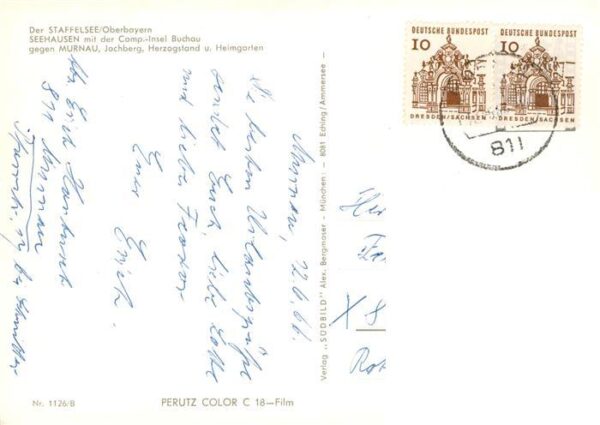 Der STAFFELSEE/Oberbayern
SEEHAUSEN mit der Camp.-Insel Buchau
gegen MURNAU, Jochberg, Herzogstand u. Heimgarten
Murnau, 22.6.66.
Die besten Urlaubsgrüße
sendet Euch, liebe Lotte
und lieber Freodor
Euer Erich.
Abs. Erich
811 Murnau
Nr. 1126/B
PERUTZ COLOR C 18—Film
Verlag „SÜDBILD" Alex. Bergmoser - München : 8081 Eching/Ammersee -
DEUTSCHE BUNDESPOST
10
DRESDEN/SACHSEN
DEUTSCHE BUNDESPOST
10
DRESDEN/SACHSEN
811
X 8